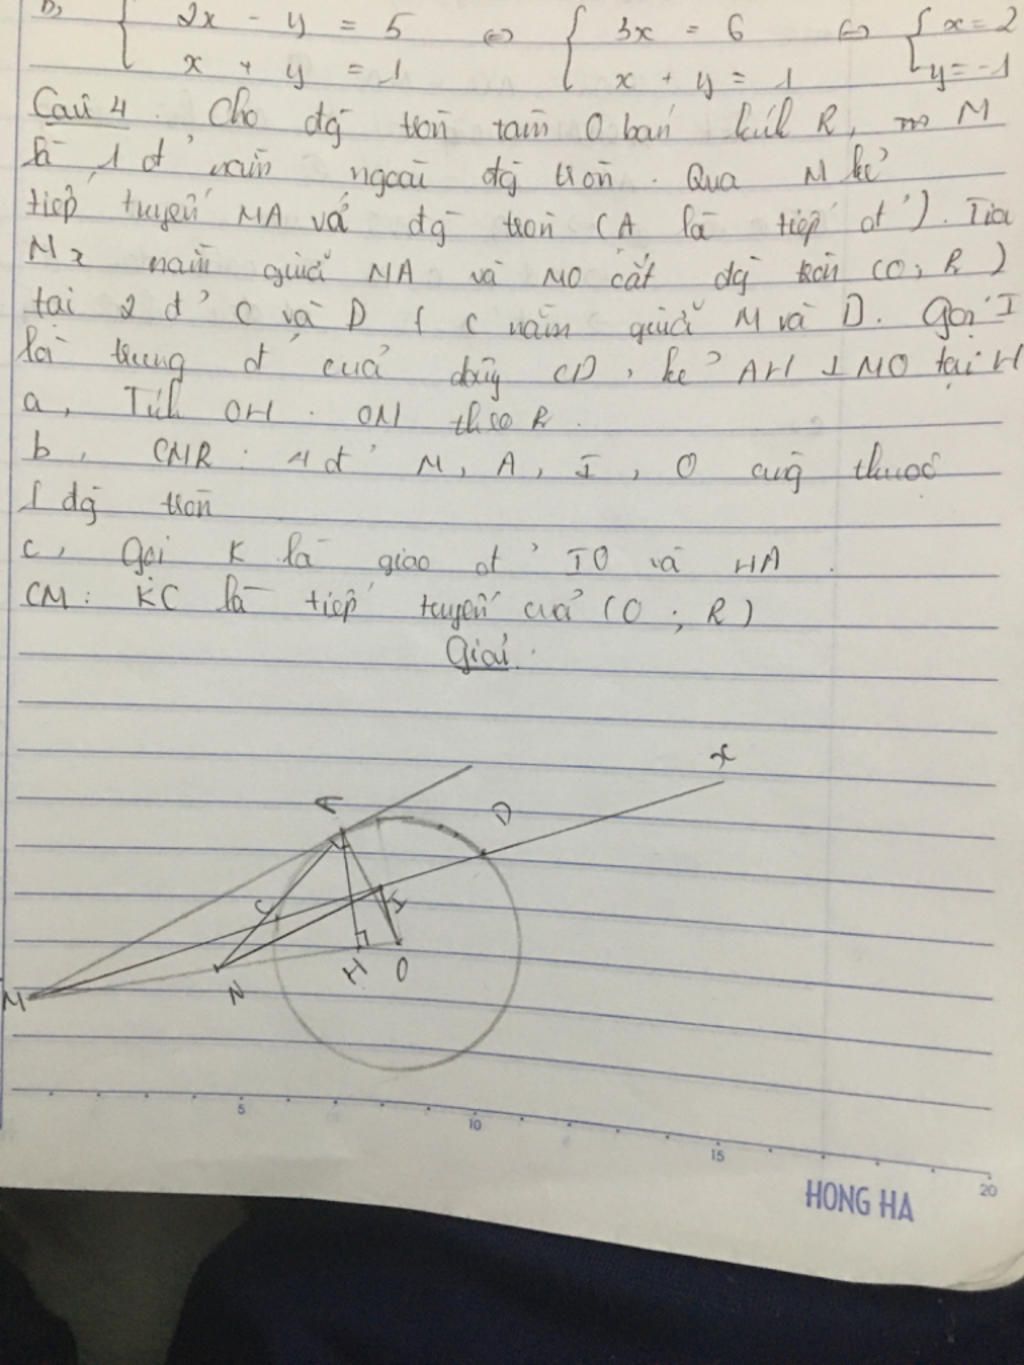 b, { 2x - y = 5 ⇔ { 3x = 6 ⇔ { x = 2
x + y = 1 x + y = 1 y = -1
Câu 4. Cho đg tròn tâm O bán kính R, M
là 1 đ' nằm ngoài đg tròn. Qua M kẻ
tiếp tuyến MA với đg tròn (A là tiếp đ'). Tia
Mx nằm giữa MA và MO cắt đg tròn (O; R)
tại 2 đ' C và D ( C nằm giữa M và D. Gọi I
là trung đ' của dây CD, kẻ AH ⊥ MO tại H
a, Tính OH . OM theo R.
b, CMR: 4 đ' M, A, I, O cùng thuộc
1 đg tròn
c, Gọi K là giao đ' IO và HA.
CM: KC là tiếp tuyến của (O; R)
Giải.
x
A
D
C
I
H
O
N
M
5
10
15
20
HONG HA